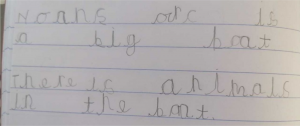 Noahs arc is
a big boat
there is animals
in the boat.